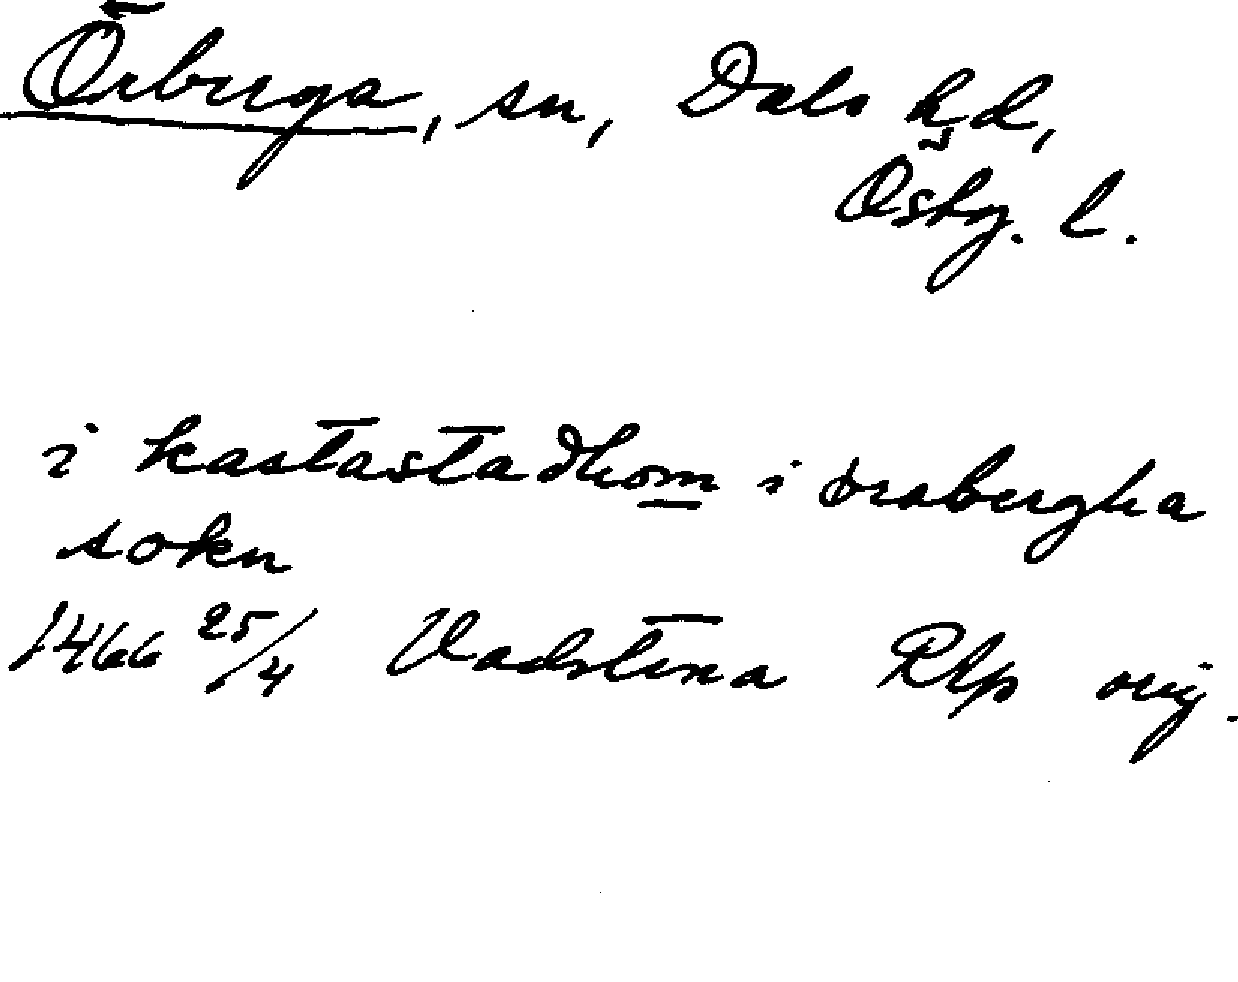 Örberga, sn, Dals hd,
Östg. l.
i kastastadhom i ørabergha
sokn
1466 25/4 Vadstena RAp orig.